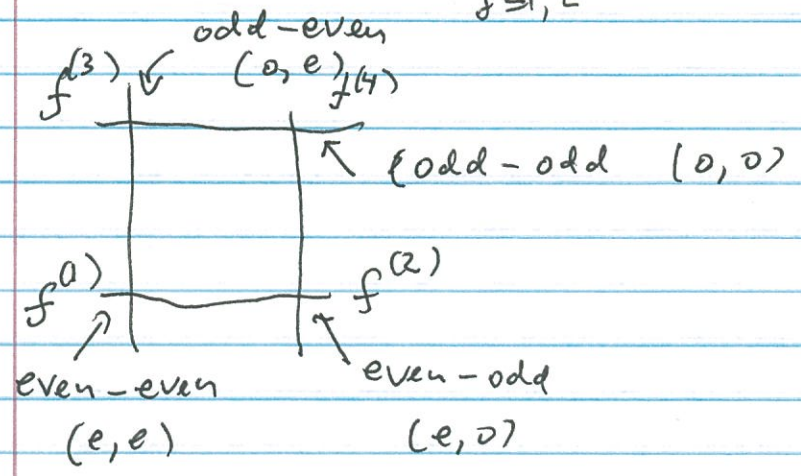 odd-even
f^(3) (o, e) f^(4)
odd-odd (o, o)
f^(1) f^(2)
even-even even-odd
(e, e) (e, o)